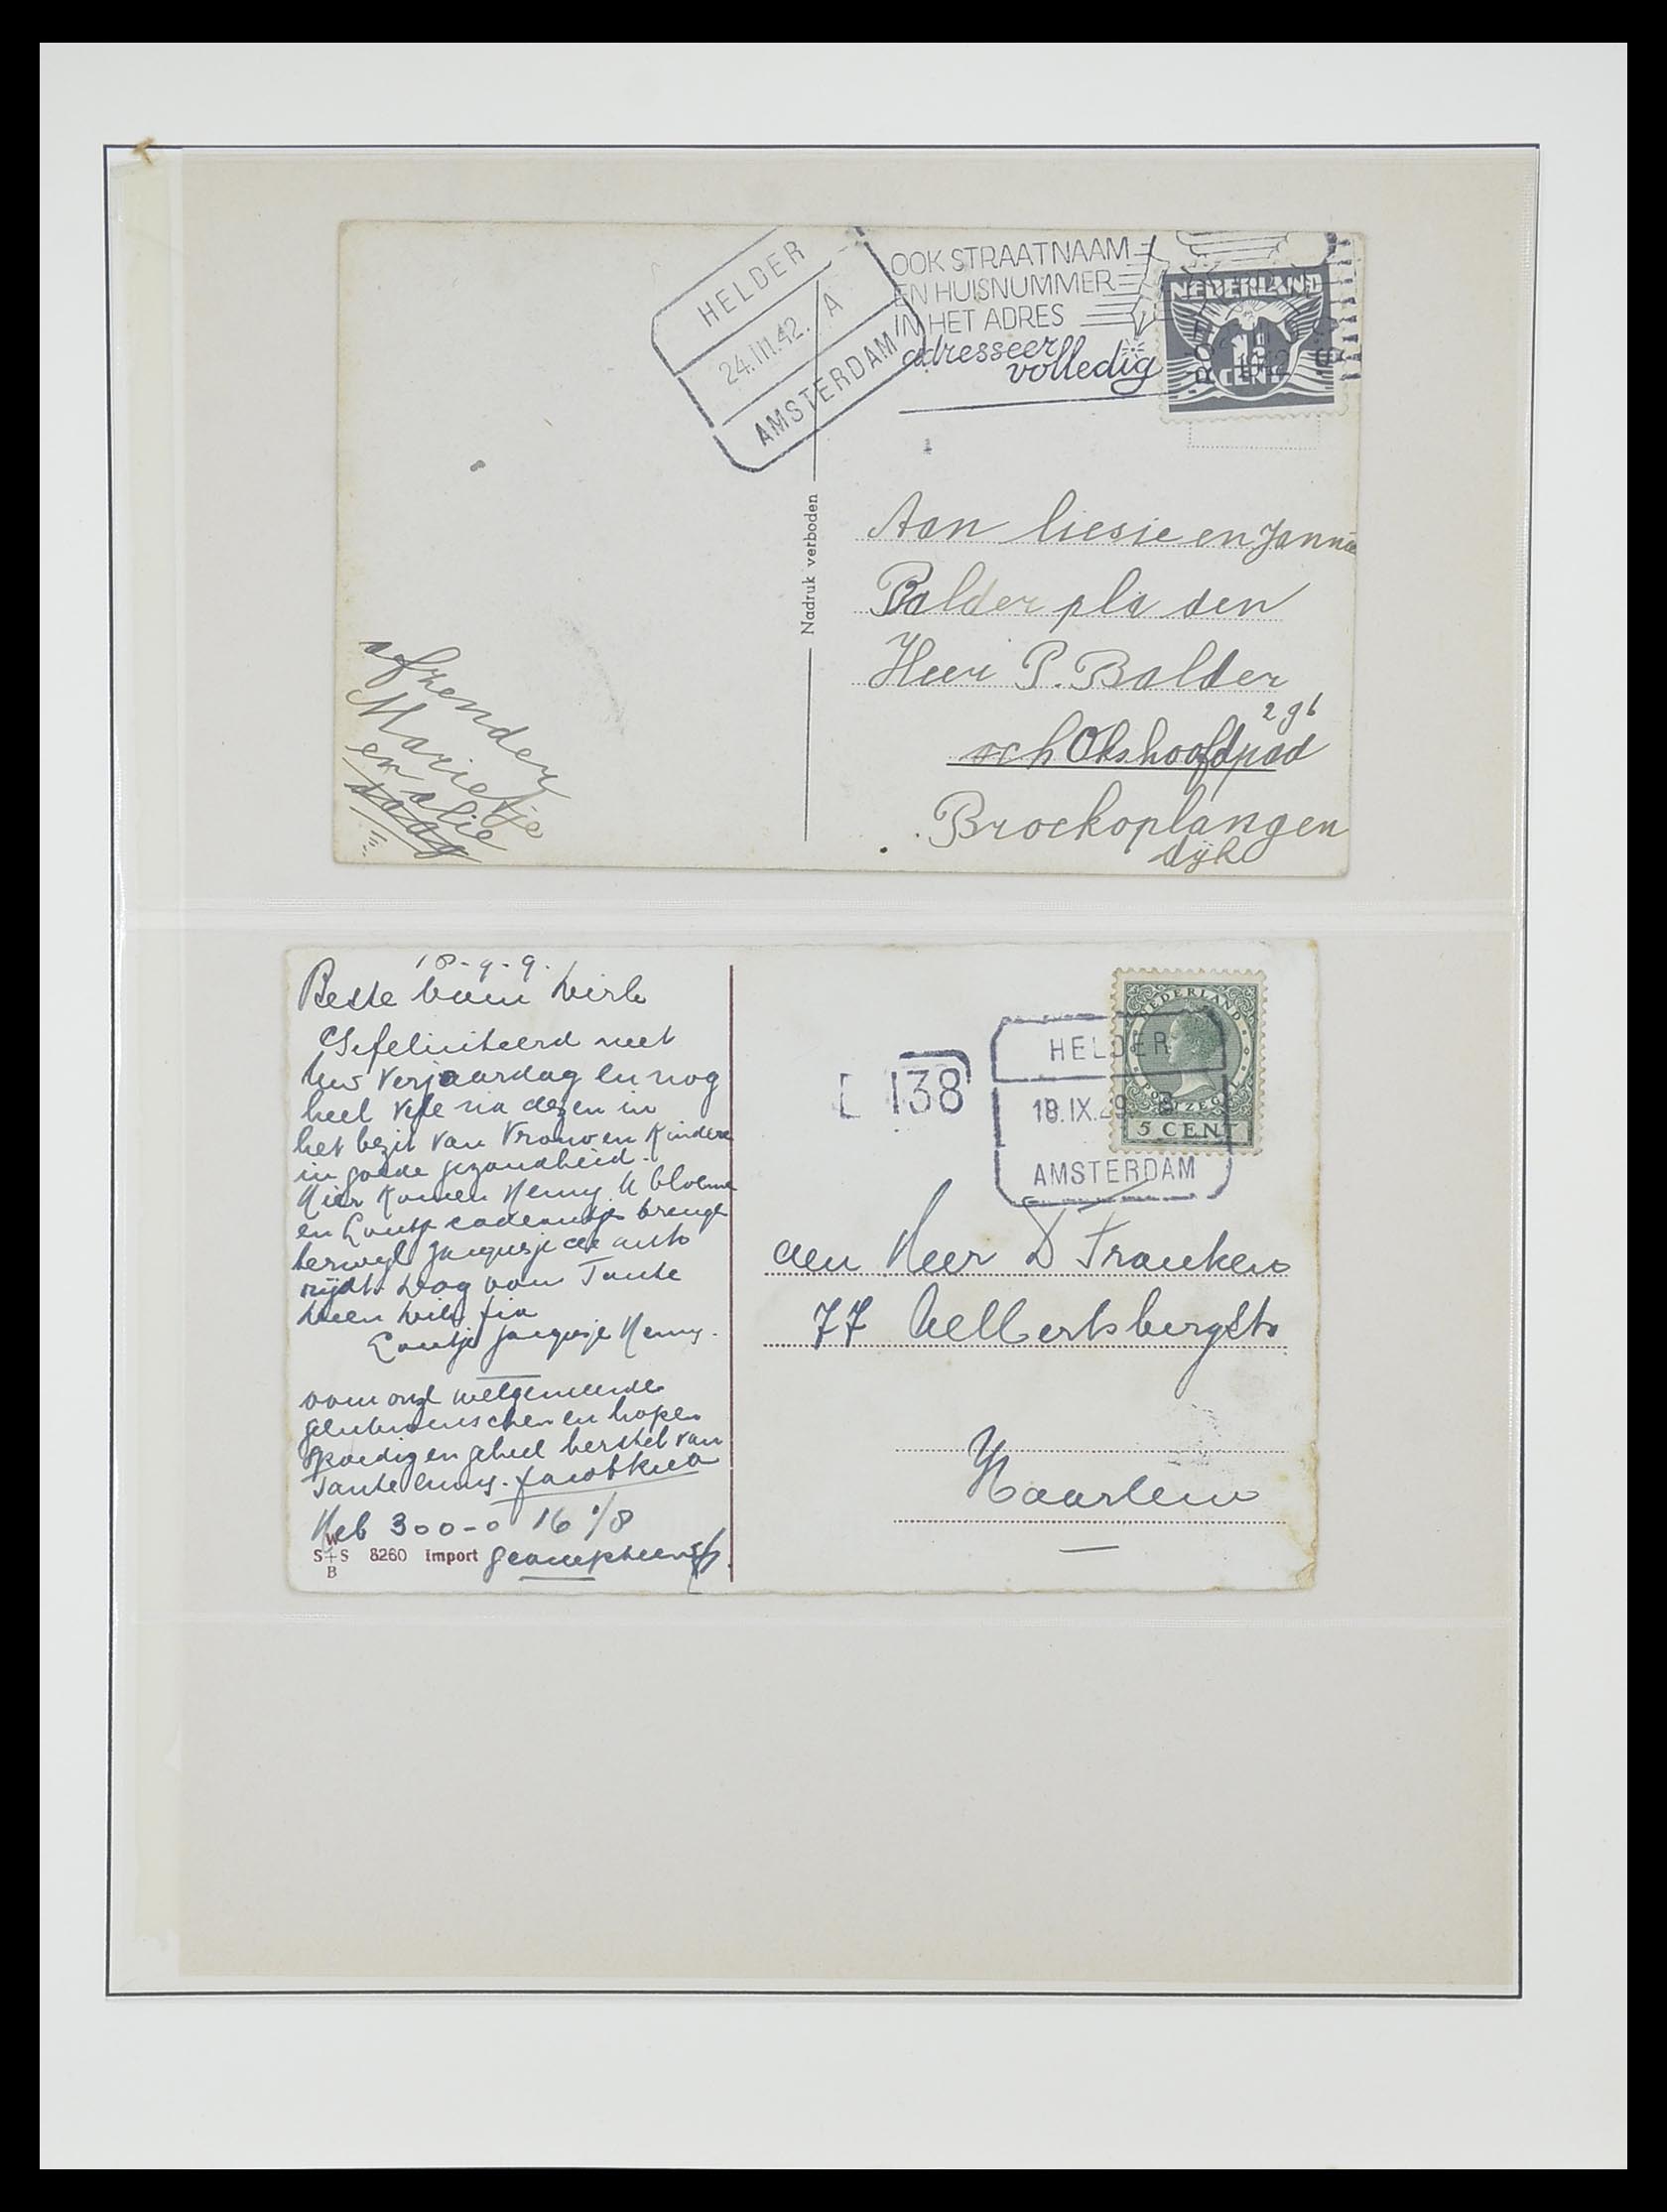 HELDER
24.III.42. A
AMSTERDAM
OOK STRAATNAAM
EN HUISNUMMER
IN HET ADRES
adresseer
volledig
NEDERLAND
1½
CENT
Nadruk verboden
Aan liesie en Jannie
Balder pla den
Heer P. Balder
296
och Okshoofdpad
Broekoplangen
dijk
afzender
Marietje
en alie
18-9-9.
Beste oom Dirk
Gefeliciteerd met
Uw Verjaardag en nog
heel Vele na dezen in
het bezit van Vrouw en Kindere
in goede gezondheid.
Hier Komen Henny U bloeme
en Loutje cadeautje brenge
terwijl Jaquesje de auto
rijdt. Dag oom Tante
Loutje Jaquesje Henny.
oom onze welgemeende
gelukwenschen en hopen
spoedig en geheel herstel van
Tante
Heb 300-0 16 1/8
W
S+S 8260 Import
B
NEDERLAND
5 CENT
L 138
HELDER
18.IX.29. 8
AMSTERDAM
den Heer D Franken
77
Haarlem